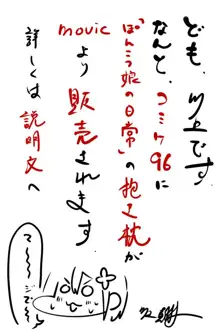 ども、川上です
なんと、コミケ96に
「ぽんこつ娘の日常」の抱き枕が
movicより販売されます
詳しくは説明文へ
て〜〜〜ジで〜〜